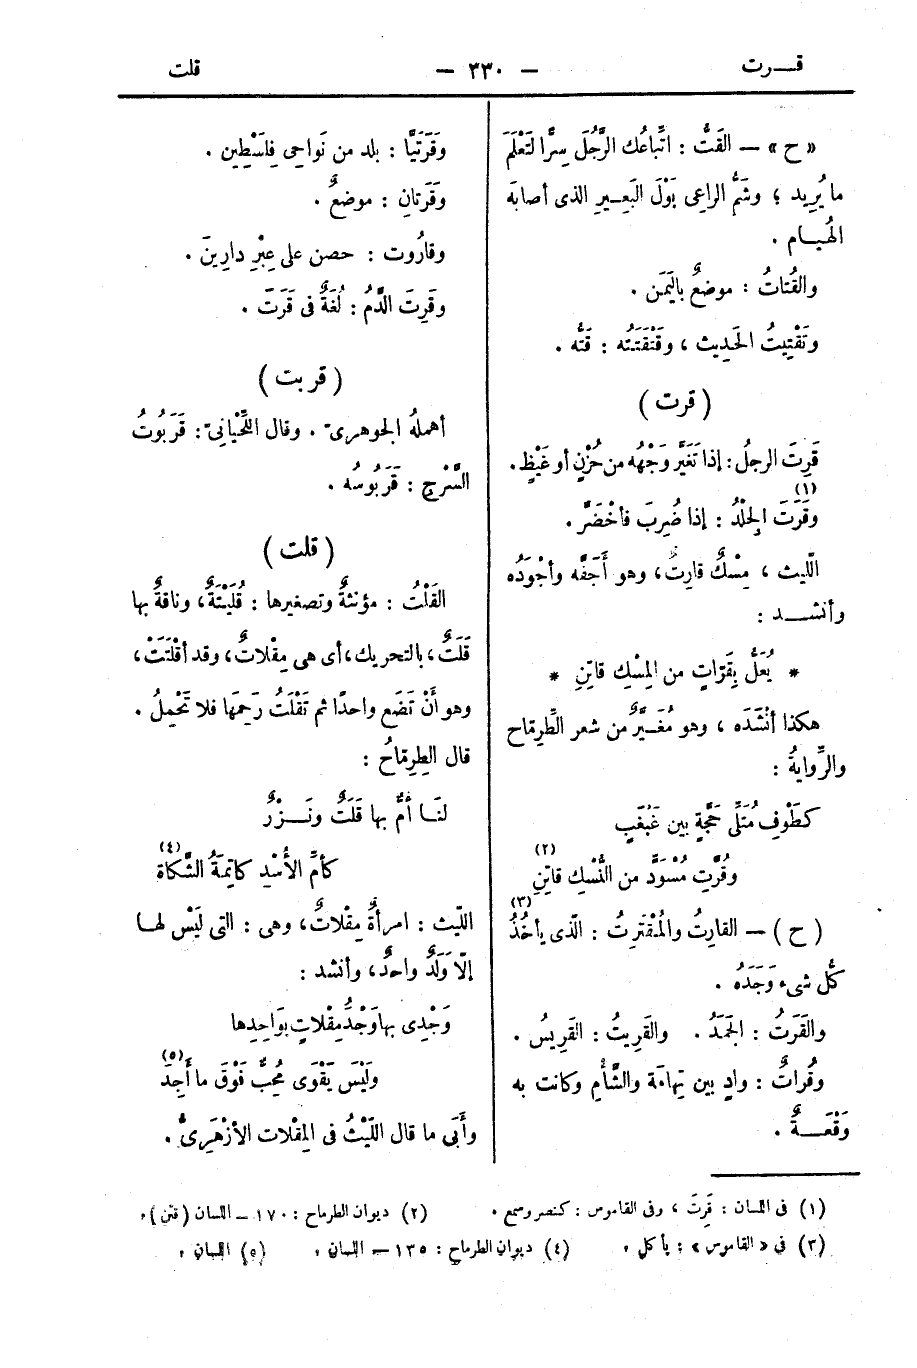 قــرت
— ٣٣٠ —
قلت
«ح» — القَتُّ : اتِّباعُك الرَّجُلَ سِرًّا لتَعْلَمَ
ما يُرِيد ؛ وشَمُّ الراعِى بَوْلَ البَعِــيرِ الذى أصابَه
الهُيــام .
والقُتاتُ : موضعٌ باليَمَن .
وتَقْتِيتُ الحَدِيث ، وقَتْقَتَتُه : قَتُّه .
( قرت )
قَرِتَ الرجلُ : إذا تَغَيَّر وَجْهُه من حُزْنٍ أو غَيْظٍ .
وقَرَتَ (١) الجِلْدُ : إذا ضُرِبَ فاخْضَرَّ .
الّليث ، مِسْكٌ قارِتٌ ، وهو أَجَفُّه وأَجْوَدُه
وأنشــــد :
* يُعَلُّ بِقَرّاتٍ من المِسْكِ قاتِنِ *
هكذا أنْشَدَه ، وهو مُغَــيَّرٌ من شعر الطِّرِمّاح
والرِّوايةُ :
كطَوْفِ مُتَلِّى حَجَّةٍ بين غَبْغَبٍ
وقُرَّتِ مُسْوَدٍّ من النُّسْكِ قاتِنِ (٢)
( ح ) — القارِتُ والمُقْتَرِتُ : الّذى يأخُذُ (٣)
كُلَّ شىء وَجَدَه .
والقَرَتُ : الجَمَدُ . والقَرِيتُ : القَرِيسُ .
وقُراتٌ : وادٍ بين تِهامَة والشَّأْمِ وكانت به
وَقْعَــــةٌ .
وقَرَتَيَّا : بلد من نَواحِى فِلَسْطِين .
وقَرَتانِ : موضعٌ .
وقارُوت : حصن على عِبْرِ دارِينَ .
وقَرِتَ الدَّمُ : لُغَةٌ فى قَرَتَ .
( قربت )
أهملهُ الجوهرىّ . وقال اللِّحْيانِىّ : قَرَبُوتُ
السَّرْجِ : قَرَبُوسُه .
( قلت )
القَلْتُ : مؤنثةٌ وتصغيرها : قُلَيْتَةٌ ، وناقةٌ بها
قَلَتٌ ، بالتحريك ، أى هى مِقْلاتٌ ، وقد أقْلَتَتْ ،
وهو أنْ تَضَع واحدًا ثم تَقْلَتُ رَحِمُها فلا تَحْمِلُ .
قال الطِرِمّاحُ :
لنَــا أُمٌّ بها قَلَتٌ ونَــــزْرٌ
كأمِّ الأُسْدِ كاتِمَةُ الشَّكاة (٤)
الليث : امرأةٌ مِقْلاتٌ ، وهى : التى لَيْس لهــا
إلّا وَلَدٌ واحدٌ ، وأنشد :
وَجْدِى بها وَجْدُ مِقْلاتٍ بِوَاحِدِها
ولَيْسَ يَقْوَى مُحِبٌّ فَوْقَ ما أَجِدُ (٥)
وأَبَى ما قال اللَّيْثُ فى المِقْلات الأزْهَرِىُّ .
(١) فى اللسان : قَرِتَ ، وفى القاموس : كنصر وسمع .
(٢) ديوان الطرماح : ١٧٠ — اللسان (قتن) .
(٣) فى «القاموس» : يأكل .
(٤) ديوان الطرماح : ١٣٥ — اللسان .
(٥) اللسان .